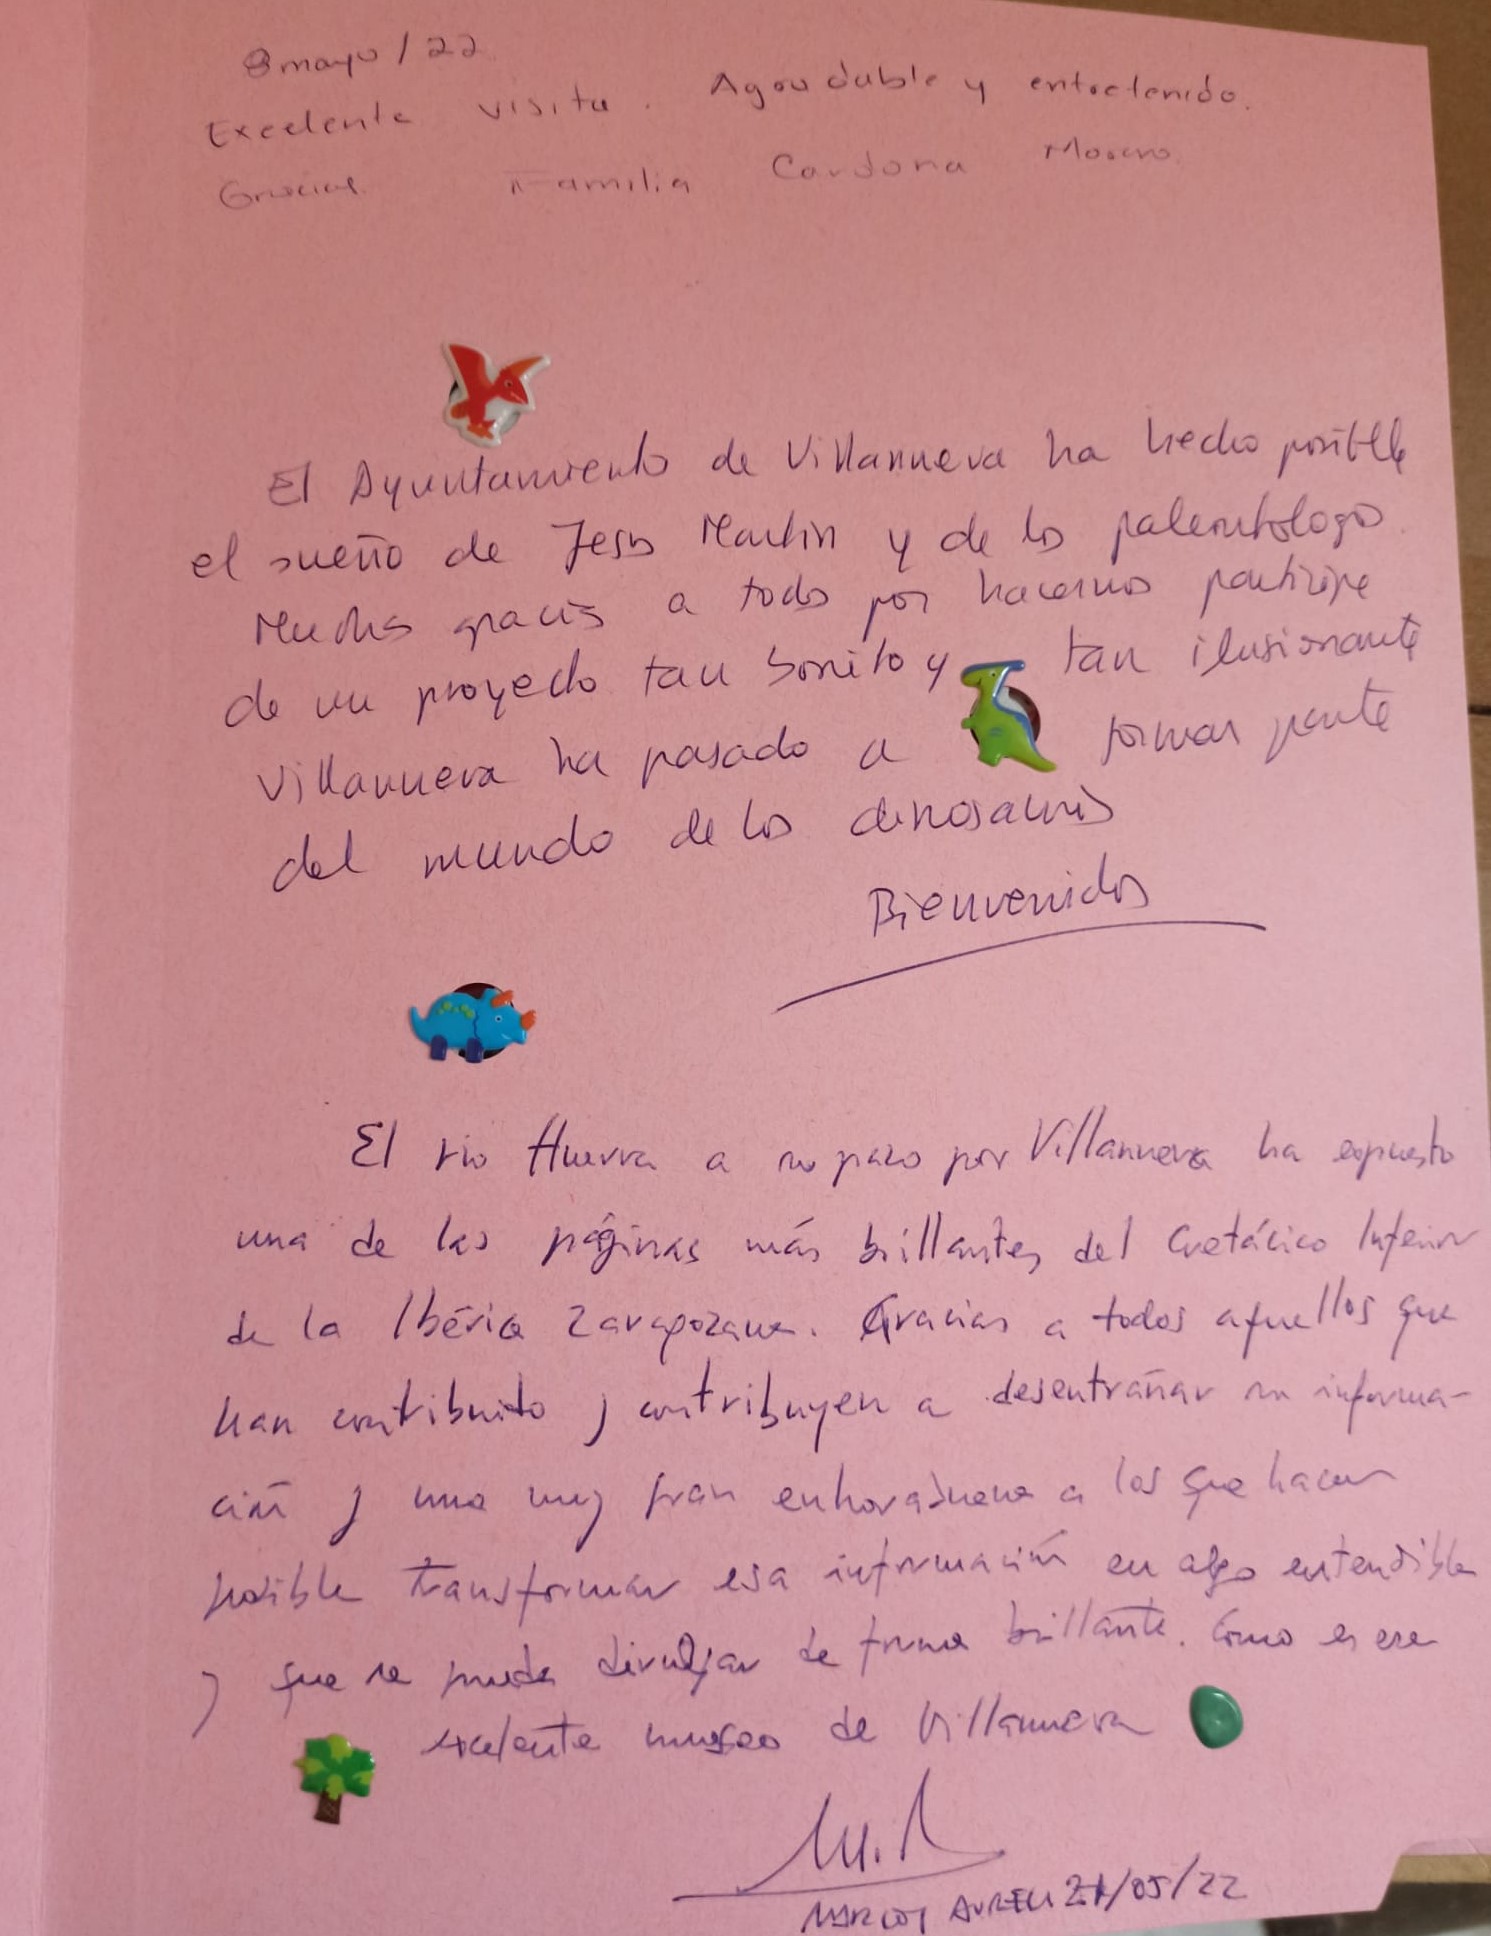 8 mayo / 22
Excelente visita. Agradable y entretenido.
Gracias Familia Cardona Moreno
El Ayuntamiento de Villanueva ha hecho posible
el sueño de Jesús Martin y de los paleontologos.
Muchas gracias a todos por hacernos participe
de un proyecto tan bonito y tan ilusionante
Villanueva ha pasado a formar parte
del mundo de los dinosaurios
Bienvenidos
El rio Huerva a su paso por Villanueva ha expuesto
una de las páginas más brillantes del Cretácico Inferior
de la Ibérica Zaragozana. Gracias a todos aquellos que
han contribuido y contribuyen a desentrañar su informa-
ción y una muy gran enhorabuena a los que hacen
posible transformar esa información en algo entendible
y que se pueda divulgar de forma brillante. Como es ese
excelente museo de Villanueva
MARCOS AURELL 21/05/22